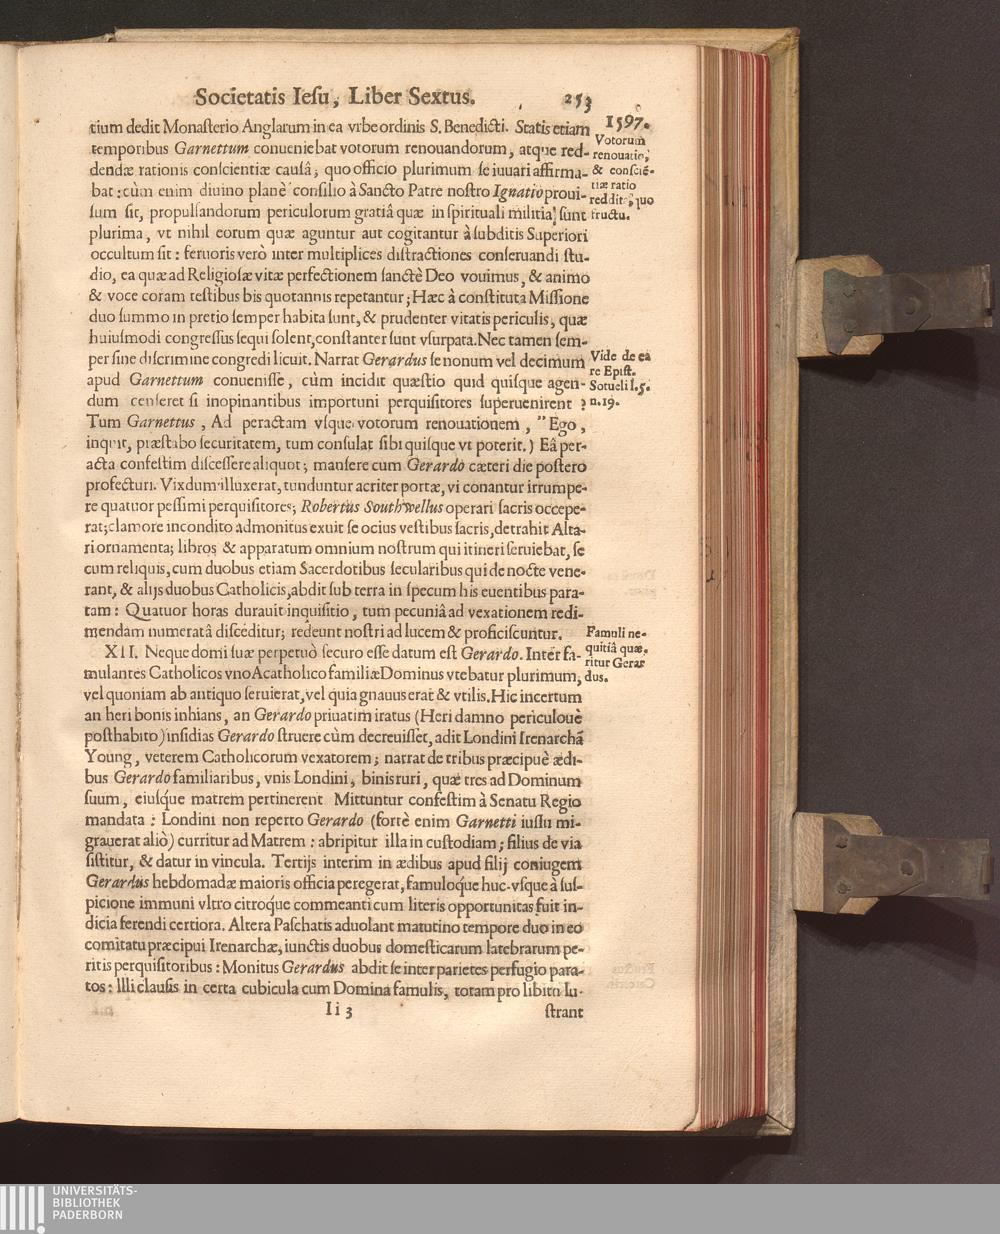 Societatis Iesu, Liber Sextus. 253
1597.
tium dedit Monasterio Anglarum in ea vrbe ordinis S. Benedicti. Statis etiam
temporibus Garnettum conueniebat votorum renouandorum, atque red-
dendæ rationis conscientiæ causâ, quo officio plurimum se iuuari affirma-
bat: cùm enim diuino planè consilio à Sancto Patre nostro Ignatio proui-
sum sit, propulsandorum periculorum gratiâ quæ in spirituali militia sunt
plurima, vt nihil eorum quæ aguntur aut cogitantur à subditis Superiori
occultum sit: feruoris verò inter multiplices distractiones conseruandi stu-
dio, ea quæ ad Religiosæ vitæ perfectionem sanctè Deo vouimus, & animo
& voce coram testibus bis quotannis repetantur; Hæc à constituta Missione
duo summo in pretio semper habita sunt, & prudenter vitatis periculis, quæ
huiusmodi congressus sequi solent, constanter sunt vsurpata. Nec tamen sem-
per sine discrimine congredi licuit. Narrat Gerardus se nonum vel decimum
apud Garnettum conuenisse, cùm incidit quæstio quid quisque agen-
dum censeret si inopinantibus importuni perquisitores superuenirent?
Tum Garnettus, Ad peractam vsque votorum renouationem, "Ego,
inquit, præstabo securitatem, tum consulat sibi quisque vt poterit.) Eâ per-
acta confestim discessere aliquot; mansere cum Gerardo cæteri die postero
profecturi. Vixdum illuxerat, tunduntur acriter portæ, vi conantur irrumpe-
re quatuor pessimi perquisitores; Robertus Southwellus operari sacris occepe-
rat; clamore incondito admonitus exuit se ocius vestibus sacris, detrahit Alta-
ri ornamenta; libros & apparatum omnium nostrum qui itineri seruiebat, se
cum reliquis, cum duobus etiam Sacerdotibus secularibus qui de nocte vene-
rant, & alijs duobus Catholicis, abdit sub terra in specum his euentibus para-
tam: Quatuor horas durauit inquisitio, tum pecuniâ ad vexationem redi-
mendam numeratâ disceditur; redeunt nostri ad lucem & proficiscuntur.
XII. Neque domi suæ perpetuò securo esse datum est Gerardo. Inter fa-
mulantes Catholicos vno Acatholico familiæ Dominus vtebatur plurimum,
vel quoniam ab antiquo seruierat, vel quia gnauus erat & vtilis. Hic incertum
an heri bonis inhians, an Gerardo priuatim iratus (Heri damno periculouè
posthabito) insidias Gerardo struere cùm decreuisset, adit Londini Irenarchã
Young, veterem Catholicorum vexatorem; narrat de tribus præcipuè ædi-
bus Gerardo familiaribus, vnis Londini, binis ruri, quæ tres ad Dominum
suum, eiusque matrem pertinerent Mittuntur confestim à Senatu Regio
mandata: Londini non reperto Gerardo (fortè enim Garnetti iussu mi-
grauerat aliò) curritur ad Matrem: abripitur illa in custodiam; filius de via
sistitur, & datur in vincula. Tertijs interim in ædibus apud filij coniugem
Gerardus hebdomadæ maioris officia peregerat, famuloque huc-vsque à sus-
picione immuni vltro citroque commeanti cum literis opportunitas fuit in-
dicia ferendi certiora. Altera Paschatis aduolant matutino tempore duo in eo
comitatu præcipui Irenarchæ, iunctis duobus domesticarum latebrarum pe-
ritis perquisitoribus: Monitus Gerardus abdit se inter parietes perfugio para-
tos: Illi clausis in certa cubicula cum Domina famulis, totam pro libitu lu-
Ii 3 strant
Votorum
renouatio,
& consciẽ-
tiæ ratio
reddita, quo
fructu.
Vide de ea
re Epist.
Sotueli l.5.
n.19.
Famuli ne-
quitiâ quæ-
ritur Gerar
dus.
UNIVERSITÄTS-
BIBLIOTHEK
PADERBORN